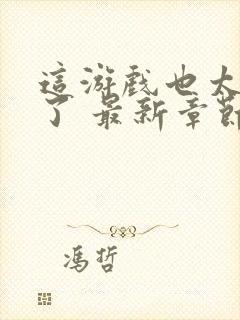 這游戲也太
了 最新章節
馮哲